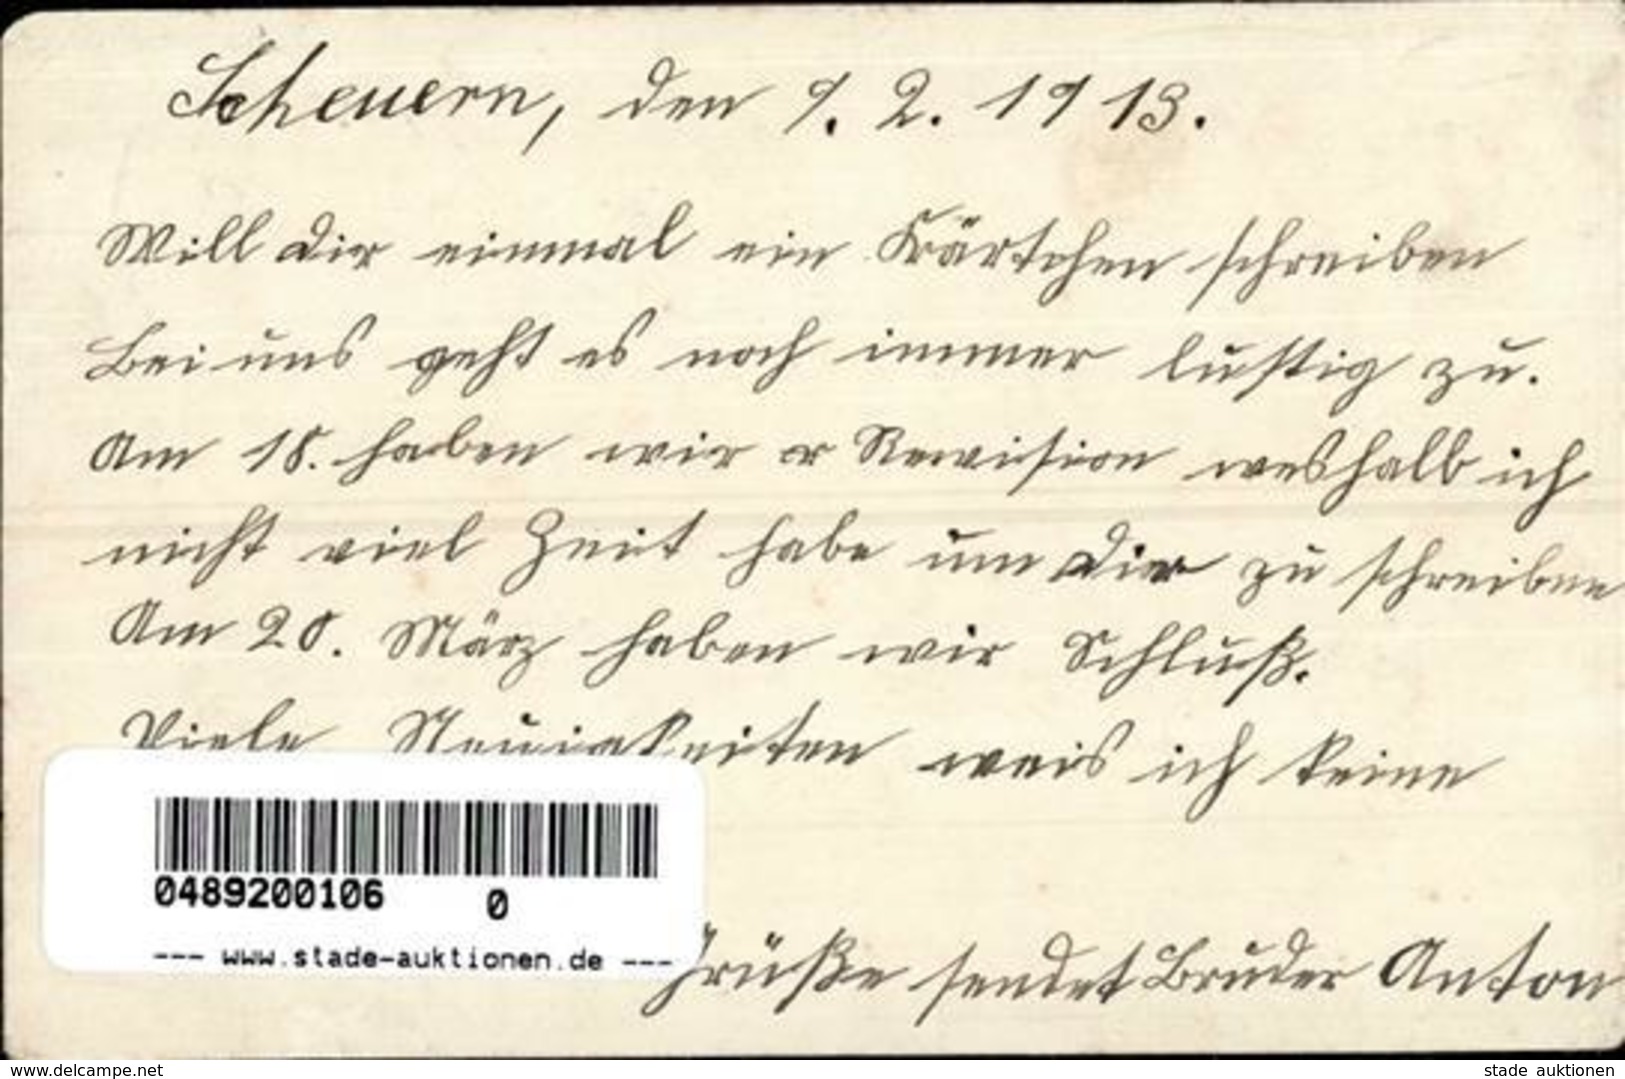 Scheuern, den 9. 2. 1913.
Will Dir einmal ein Kärtchen schreiben
Bei uns geht es noch immer lustig zu.
Am 18. haben wir Rewision weshalb ich
nicht viel Zeit habe um Dir zu schreiben
Am 20. März haben wir Schluß.
Viele Neuigkeiten weis ich keine
0489200106 0
--- www.stade-auktionen.de ---
Grüße sendet Bruder Anton
www.delcampe.net
stade auktionen